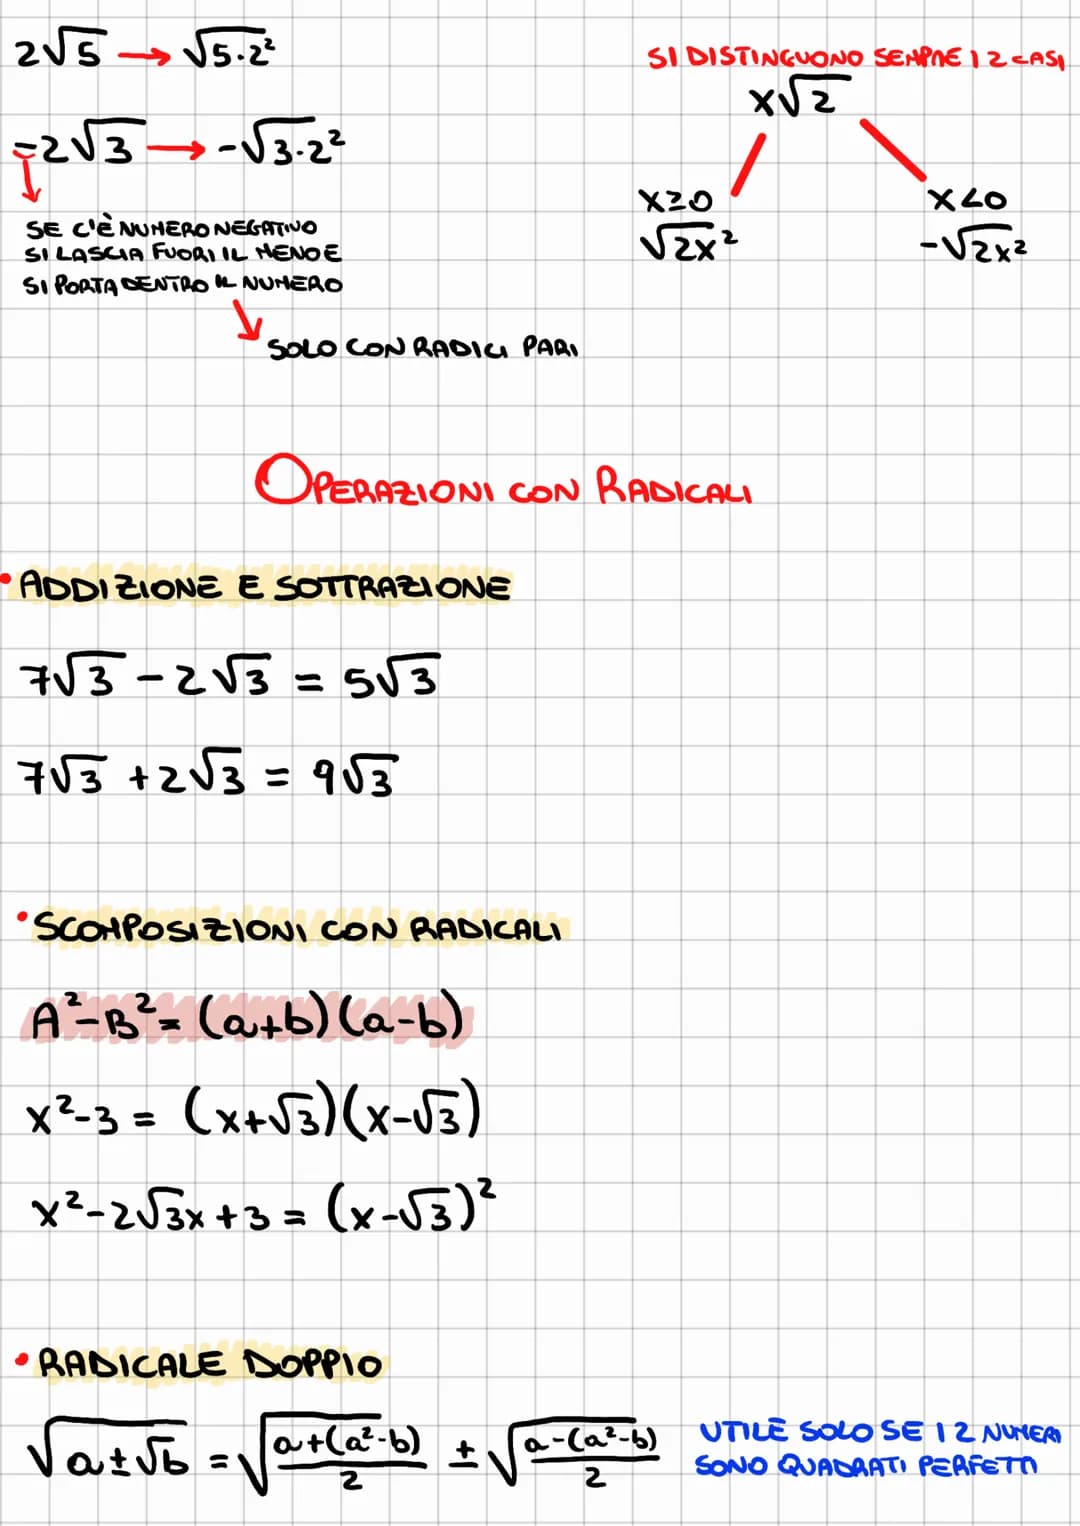 2√5 → √5·2²
-2√3 → -√3·2²
SE C'È NUMERO NEGATIVO
SI LASCIA FUORI IL MENO E
SI PORTA DENTRO IL NUMERO
SOLO CON RADICI PARI
SI DISTINGUONO SEMPRE I 2 CASI
x√2
x≥0 x<0
√2x² -√2x²
OPERAZIONI CON RADICALI
• ADDIZIONE E SOTTRAZIONE
7√3 - 2√3 = 5√3
7√3 + 2√3 = 9√3
• SCOMPOSIZIONI CON RADICALI
A²-B² = (a+b)(a-b)
x²-3 = (x+√3)(x-√3)
x²-2√3x+3 = (x-√3)²
• RADICALE DOPPIO
√a±√b = √a+(a²-b)/2 ± √a-(a²-b)/2
UTILE SOLO SE I 2 NUMERI
SONO QUADRATI PERFETTI